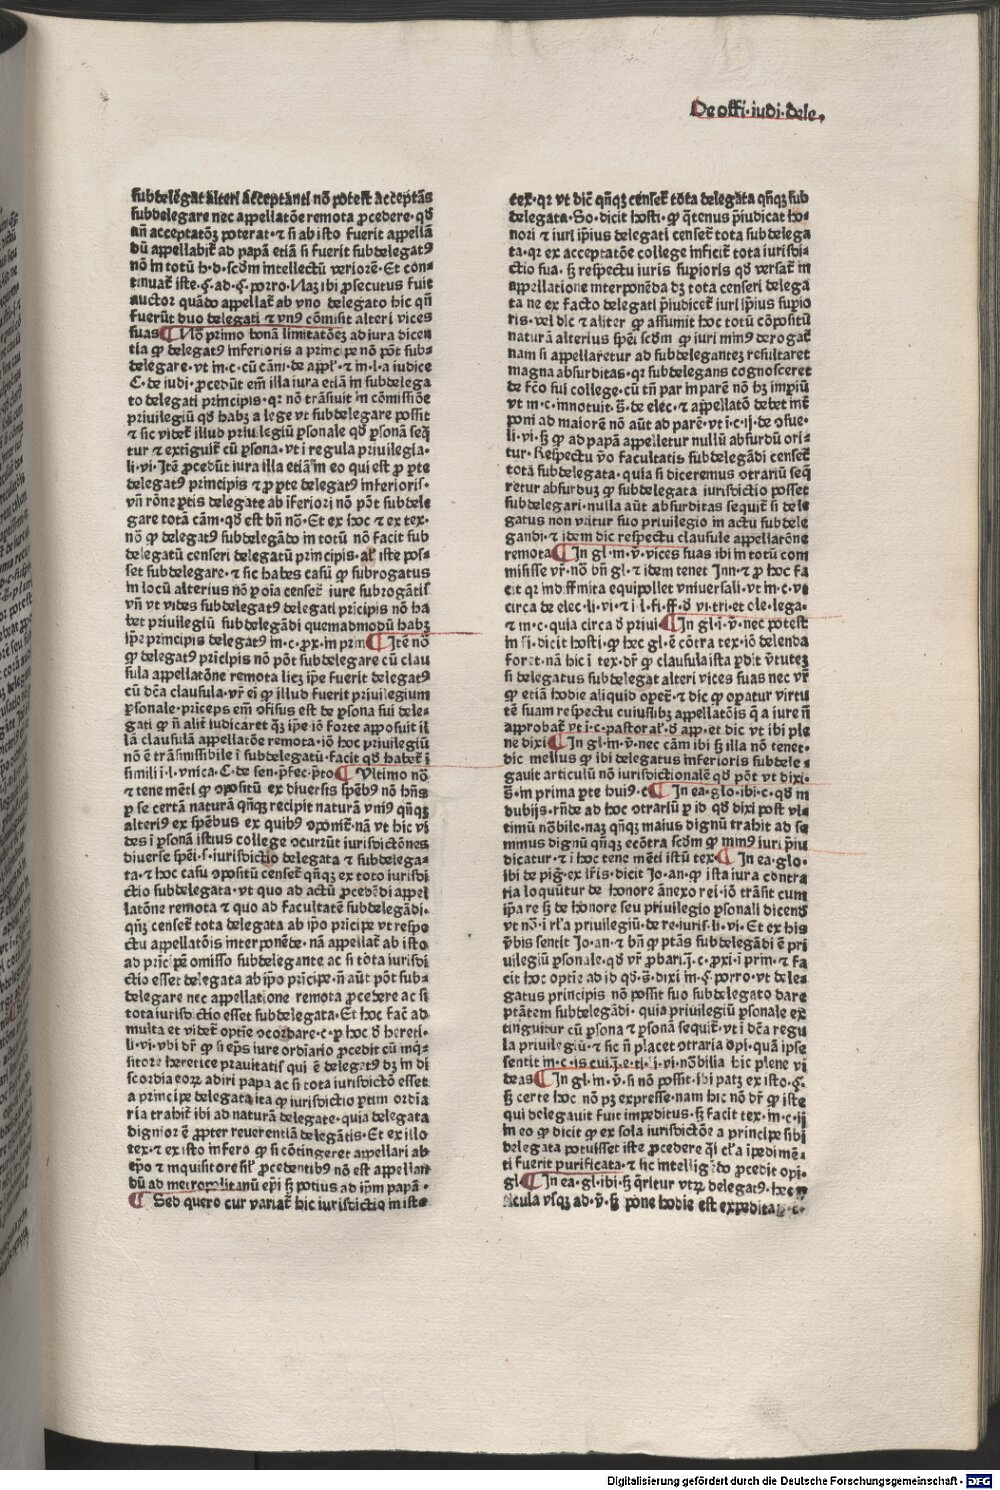 De offi·iudi·dele·
subdelegat alteri acceptanti nō potest acceptās
subdelegare nec appellatōe remota ꝓcedere·qd
an̄ acceptatōꝫ poterat·⁊ si ab isto fuerit appellā
dū appellabit̄ ad papā etiā si fuerit subdelegatꝰ
nō in totū h·d·scdm intellectū veriorē·Et con⸗
tinuat̄ iste·§·ad·§·porro·Naꝫ ibi ꝓsecutus fuit
auctor quādo appellat̄ ab vno delegato hic qn̄
fuerūt duo delegati ⁊ vnꝰ cōmisit alteri vices
suas ¶ Nō primo bonā limitatōeꝫ ad iura dicen
tia ꝙ delegatꝰ inferioris a principe nō pōt sub⸗
delegare·vt in·c·cū cām·de appl̄·⁊ in·l·a iudice
C·de iudi·ꝓcedūt em̄ illa iura etiā in subdelega
to delegati principis·qr nō trāsiuit in cōmissiōe
priuilegiū qd habꝫ a lege vt subdelegare possit
⁊ sic videt̄ illud priuilegiū ꝑsonale qd ꝑsonā seq̄
tur ⁊ extiguit̄ cū ꝑsona·vt i regula priuilegia·
li·vi·Itē ꝓcedūt iura illa etiā in eo qui est ꝓ ꝑte
delegatꝰ principis ⁊ ꝓ ꝑte delegatꝰ inferioris·
vn̄ rōne ꝑtis delegate ab īferiori nō pōt subdele
gare totā cām·qd est bn̄ nō·Et ex hoc ⁊ ex tex·
nō ꝙ delegatꝰ subdelegādo in totū nō facit sub
delegatū censeri delegatū principis·al̄ iste pos⸗
set subdelegare·⁊ sic habes casū ꝙ subrogatus
in locū alterius nō ꝑ oīa censet̄ iure subrogātis
vn̄ vt vides subdelegatꝰ delegati prīcipis nō ha
bet priuilegiū subdelegādi quemadmodū habꝫ
ip̄e principis delegatꝰ in·c·ꝓx·in prin ¶ Itē nō
ꝙ delegatꝰ prīcipis nō pōt subdelegare cū clau
sula appellatōne remota licꝫ ip̄e fuerit delegatꝰ
cū dc̄a clausula·vr̄ ei ꝙ illud fuerit priuilegium
ꝑsonale·priceps em̄ ɔfisus est de ꝑsona sui dele⸗
gati ꝙ n̄ alit̄ iudicaret qꝫ ip̄e iō forte apposuit il
lā clausulā appellatōe remota·iō hoc priuilegiū
nō ē trāsmissibile ī subdelegatū·facit qd habet̄ ī
simili i·l·vnica·C·de sen·p̄fec·p̄to ¶ Vltimo nō
⁊ tene mēti ꝙ ɔpositū ex diuersis spēbꝰ nō hn̄s
ꝑ se certā naturā qn̄qꝫ recipit naturā vniꝰ qn̄qꝫ
alteriꝰ ex spēbus ex quibꝰ ɔponit̄·nā vt hic vi
des ī ꝑsonā istius college ɔcurrūt iurisdictōnes
diuerse spēi·s·iurisdictio delegata ⁊ subdelega⸗
ta·⁊ hoc casu ɔpositū censet̄ qn̄qꝫ ex toto iurisdi
ctio subdelegata·vt quo ad actū ꝓcedēdi appel
latōne remota ⁊ quo ad facultatē subdelegādi·
qn̄ꝫ censet̄ tota delegata ab ip̄o prīcipe vt respe
ctu appellatōis interponēde·nā appellat̄ ab isto
ad prīcipē omisso subdelegante ac si tota iurisdi
ctio esset delegata ab ip̄o prīcipe·n̄ aūt pōt sub⸗
delegare nec appellatione remota ꝓcedere ac si
tota iurisdictio esset subdelegata·Et hoc fac̄ ad
multa et videt̄ optīe ɔcordare·c·ꝑ hoc d̄ hereti·
li·vi·vbi dr̄ ꝙ si ep̄s iure ordiario ꝓcedit cū inq̄⸗
sitore heretice prauitatis qui ē delegatꝰ dꝫ in di
scordia eoꝝ adiri papa ac si tota iurisdictō esset
a principe delegata ita ꝙ iurisdictio ꝑtim ordia
ria trahit̄ ibi ad naturā delegate·quia delegata
dignior ē ꝓpter reuerentiā delegātis·Et ex illo
tex·⁊ ex isto infero ꝙ si cōtingeret appellari ab
ep̄o ⁊ inquisitore sil̄ ꝓcedentibꝰ nō est appellan
dū ad metropolitanū ep̄i sꝫ potius ad ip̄m papā·
¶ Sed quero cur variat̄ hic iurisdictio in isto
tex·qr vt dic̄ qn̄qꝫ censet̄ tōta delegata qn̄qꝫ sub
delegata·So·dicit hosti·ꝙ q̄tenus p̄iudicat ho⸗
nori ⁊ iuri ip̄ius delegati censet̄ tota subdelega
ta·qr ex acceptatōe college inficit̄ tota iurisdi⸗
ctio sua·sꝫ respectu iuris suꝑioris qd versat̄ in
appellatione interponēda dꝫ tota censeri delega
ta ne ex facto delegati p̄iudicet̄ iuri ip̄ius suꝑio
ris·vel dic ⁊ aliter ꝙ assumit hoc totū cōpositū
naturā alterius spēi scdm ꝙ iuri minꝰ derogat̄
nam si appellaretur ad subdelegantez resultaret
magna absurditas·qr subdelegans cognosceret
de fc̄o sui college·cū tn̄ par in parē nō hꝫ impiū
vt in·c·innotuit·s̄·de elec·⁊ appellatō debet int̄
poni ad maiorē nō aūt ad parē·vt i·c·ij·de ɔsue·
li·vi·sꝫ ꝙ ad papā appelletur nullū absurdū ori⸗
tur·Respectu v̄o facultatis subdelegādi censet̄
tota subdelegata·quia si diceremus ɔtrariū seq̄
retur absurduꝫ ꝙ subdelegata iurisdictio posset
subdelegari·nulla aūt absurditas sequit̄ si dele
gatus non vtitur suo priuilegio in actu subdele
gandi·⁊ idem dic respectu clausule appellatōne
remota ¶ In gl·in·v̄·vices suas ibi in totū com
misisse vr̄·nō bn̄ gl·⁊ idem tenet Inn·⁊ ꝓ hoc fa
cit qr indiffinita equipollet vniuersali·vt in·c·vt
circa de elec·li·vi·⁊ i·l·fi·ff·d̄ vi·tri·et ole·lega·
⁊ in·c·quia circa d̄ priui ¶ In gl·i·v̄·nec potest
in fi·dicit hosti·ꝙ hec gl·ē cōtra tex·iō delenda
foret·nā hic ī tex·dr̄ ꝙ clausula ista ꝑdit v̄tuteꝫ
si delegatus subdelegat alteri vices suas nec vr̄
ꝙ etiā hodie aliquid oꝑet̄·⁊ dic ꝙ oꝑatur virtu
tē suam respectu cuiuslibꝫ appellatōis q̄ a iure n̄
approbat̄ vt i·c·pastoral·d̄ app·et dic vt ibi ple
ne dixi ¶ In gl·in·v̄·nec cām ibi sꝫ illa nō tenet·
dic melius ꝙ ibi delegatus inferioris subdele⸗
gauit articulū nō iurisdictionalē qd pōt vt dixi·
s̄·in prima ꝑte huiꝰ·c ¶ In ea·glo·ibi·c·qd in
dubijs·rn̄de ad hoc ɔtrariū ꝑ id qd dixi post vl⸗
timū nōbile·naꝫ qn̄qꝫ maius dignū trahit ad se
minus dignū qn̄qꝫ ecōtra scdm ꝙ minꝰ iuri p̄iu
dicatur·⁊ i hoc tene mēti istū tex ¶ In ea·glo·
ibi de piḡ·ex lr̄is·dicit Io·an·ꝙ ista iura contra
ria loquūtur de honore ānexo rei·iō trāsit cum
ip̄a re sꝫ de honore seu priuilegio ꝑsonali dicend
vt nō·i rl̄a priuilegiū·de re·iuris·li·vi·Et ex his
v̄bis sentit Io·an·⁊ bn̄ ꝙ ptās subdelegādi ē pri
uilegiū ꝑsonale·qd vr̄ ꝓbari·j̄·c·ꝓxi·ī prin·⁊ fa
cit hoc optīe ad id qd·s̄·dixi in·§·porro·vt dele⸗
gatus principis nō possit suo subdelegato dare
ptātem subdelegādi·quia priuilegiū ꝑsonale ex
tinguitur cū ꝑsona ⁊ ꝑsonā sequit̄·vt i dc̄a regu
la priuilegiū·⁊ sic n̄ placet ɔtraria opi·quā ipse
sentit in·c·is cui·j̄·e·ti·li·vi·nōbilia hic plene vi
deas ¶ In gl·in·v̄·si nō possit·ibi patꝫ ex isto·§·
sꝫ certe hoc nō pꝫ expresse·nam hic nō dr̄ ꝙ iste
qui delegauit fuit impeditus·sꝫ facit tex·in·c·ij
in eo ꝙ dicit ꝙ ex sola iurisdictōe a principe sibi
delegata potuisset iste ꝓcedere q̄si cl̄a ipedimē⸗
ti fuerit purificata·⁊ sic intelligēdo ꝓcedit opi·
gl· ¶ In ea·gl·ibi·sꝫ q̄ritur vtꝝ delegatꝰ·hec
ticula vsqꝫ ad·v̄·sꝫ pone hodie est expedita
Digitalisierung gefördert durch die Deutsche Forschungsgemeinschaft - DFG